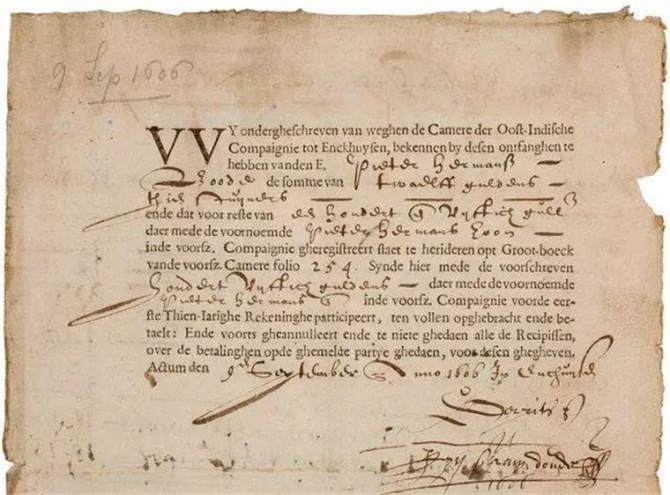 9 Sep 1606
VVY ondergheschreven van weghen de Camere der Oost-Indische
Compaignie tot Enckhuysen, bekennen by desen ontfanghen te
hebben vanden E. Pieter Hermansz
de somme van twaelff guldens
ende dat voor reste van hondert Vyftich gull
daer mede de voornoemde Pieter Hermans
inde voorsz. Compagnie gheregistreert staet te herideren opt Groot-boeck
vande voorsz. Camere folio 254. Synde hier mede de voorschreven
hondert Vyftich guldens daer mede de voornoemde
Pieter Hermans inde voorsz. Compagnie voorde eer-
ste Thien-Iarighe Rekeninghe participeert, ten vollen opghebracht ende be-
taelt: Ende voorts gheannulleert ende te niete ghedaen alle de Recipissen,
over de betalinghen opde ghemelde partye ghedaen, voor desen ghegheven.
Actum den 9 September Anno 1606
1606